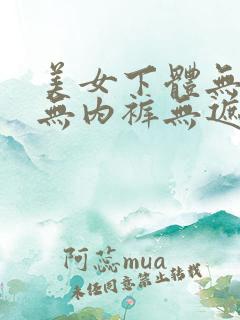 美女下體無
無內褲無遮
阿蕊mua
未经同意禁止转载